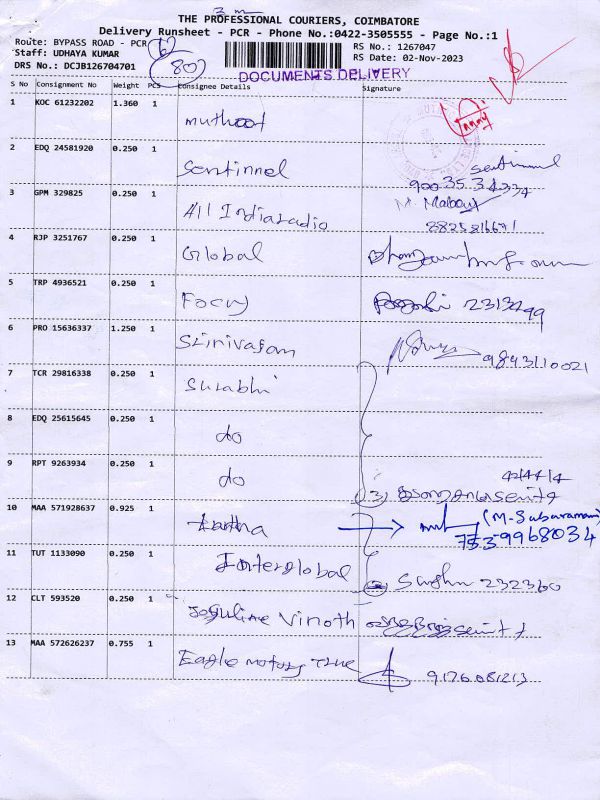 THE PROFESSIONAL COURIERS, COIMBATORE
Delivery Runsheet - PCR - Phone No.:0422-3505555 - Page No.:1
Route: BYPASS ROAD - PCR
Staff: UDHAYA KUMAR
DRS No.: DCJB126704701
RS No.: 1267047
RS Date: 02-Nov-2023
80
DOCUMENTS DELIVERY
S No Consignment No Weight PCS Consignee Details Signature
1 KOC 61232202 1.360 1 muthoot
2 EDQ 24581920 0.250 1 Sentinnel
3 GPM 329825 0.250 1 All Indiaradio
4 RJP 3251767 0.250 1 Global
5 TRP 4936521 0.250 1 2313499
6 PRO 15636337 1.250 1 Srinivasan 9843110021
7 TCR 29816338 0.250 1 Surabhi
8 EDQ 25615645 0.250 1 do
9 RPT 9263934 0.250 1 do
10 MAA 571928637 0.925 1 (M. Subaramani)
753 9968034
11 TUT 1133090 0.250 1 Interglobal 232360
12 CLT 593520 0.250 1 Vinoth
13 MAA 572626237 0.755 1 Eagle motors 9176081213